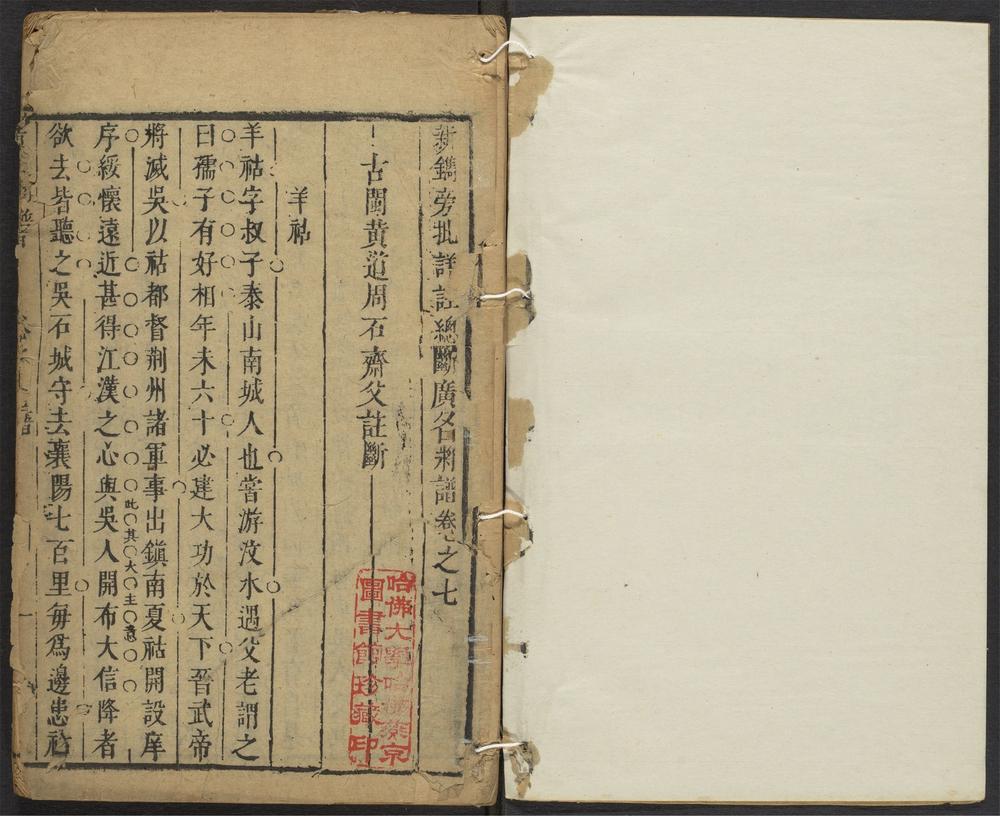 新鐫旁批詳註總斷廣名將譜卷之七
古閩黃道周石齋父註斷
羊祜
羊祜字叔子泰山南城人也嘗游汶水遇父老謂之
曰孺子有好相年未六十必建大功於天下晉武帝
將滅吳以祜都督荊州諸軍事出鎭南夏祜開設庠
此其大主意
序綏懷遠近甚得江漢之心與吳人開布大信降者
欲去皆聽之吳石城守去襄陽七百里每爲邊患祜
哈佛大學哈佛燕京
圖書館珍藏印